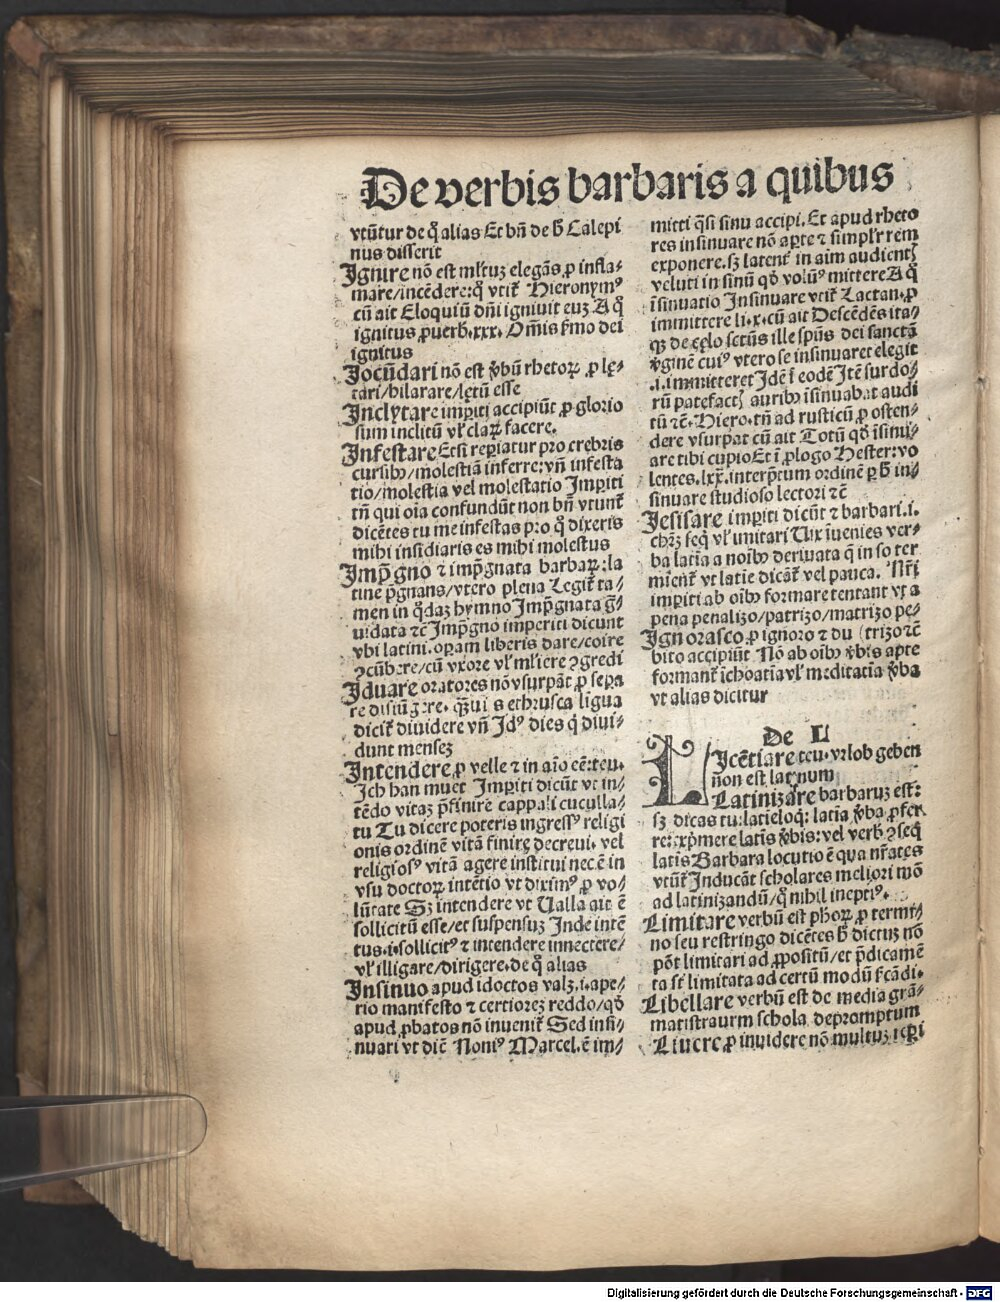 De verbis barbaris a quibus
vtũtur de q̃ alias Et bñ de h̃ Calepi
nus disserit
Ignire nõ est ml'tuʒ elegãs, ꝓ infla⸗
mare/incẽdere: q̃ vtit̃ Hieronymꝰ
cũ ait Eloquiũ dñi igniuit euʒ A q̃
ignitus ꝓuerb.xxx. Om̃is s̃mo dei
ignitus
Jocũdari nõ est v̓bũ rhetoꝝ ꝓ lę⸗
tari/hilarare/lętũ esse
Inclytare imꝑiti accipiũt ꝓ glorio
sum inclitũ vl' claꝝ facere.
Infestare Etsi reꝑiatur pro crebris
cursibꝰ/molestiã inferre: vñ infesta
tio/molestia vel molestatio Imꝑiti
tñ qui oĩa confundũt non bñ vtunt̃
dicẽtes tu me infestas pro q̃ dixeris
mihi insidiaris es mihi molestus
Imp̃gno ⁊ imp̃gnata barbaꝝ: la
tine p̃gnans/vtero plena Legit̃ ta⸗
men in q̃daʒ hymno Imp̃gnata g̃⸗
uidata ⁊c̃ Imp̃gno imperiti dicunt
vbi latini. oꝑam liberis dare/coire
ꝯcũbere/cũ vxore vl' ml'iere ꝯgredi
Iduare oratores nõ vsurpãt ꝓ sepa
re disiũgere. quãuis ethrusca lĩgua
dicit̃ diuidere vñ Idꝰ dies q̃ diui⸗
dunt menseʒ
Intendere ꝓ velle ⁊ in aĩo cẽ: teu.
Ich han muet Imꝑiti dicũt vt in⸗
tẽdo vitaʒ p̃finire cappali cuculla⸗
tu Tu dicere poteris ingressꝰ religi
onis ordinẽ vitã finire decreui. vel
religiosꝰ vitã agere institui nec ẽ in
vsu doctoꝝ intẽtio vt diximꝰ ꝓ vo⸗
lũtate Sʒ intendere vt Ualla ait ẽ
sollicitũ esse/et suspensuʒ Inde intẽ
tus.i.sollicitꝰ ⁊ intendere innectere/
vl' illigare/dirigere. de q̃ alias
Insinuo apud idoctos valʒ.i.ape⸗
rio manifesto ⁊ certioreʒ reddo/qđ
apud ꝓbatos nõ inuenit̃ Sed insi⸗
nuari vt dic̃ Noniꝰ Marcel. ẽ im⸗
mitti q̃si sinu accipi. Et apud rheto
res insinuare nõ aꝑte ⁊ simpl'r rem
exponere. sʒ latent̃ in aĩm audient̃
veluti in sinũ qđ volũꝰ mittere A q̃
ĩsinuatio Insinuare vtit̃ Lactan. ꝓ
immittere li.x. cũ ait Descẽdẽs ita⸗
qʒ de cęlo sctũs ille spũs dei sanctã
v̓ginẽ cuiꝰ vtero se insinuaret elegit
.i.immitteret Idẽ ĩ eodẽ Itẽ surdo⸗
rũ patefact̃ auribꝰ ĩsinuabat audi
tũ ⁊c̃. Hiero. tñ ad rusticũ ꝓ osten⸗
dere vsurpat cũ ait Totũ qđ ĩsinu⸗
are tibi cupio Et ĩ ꝓlogo Hester: vo
lentes.lxx.interp̃tum ordinẽ ꝑ h̃ in⸗
sinuare studioso lectori ⁊c̃
Jesisare imꝑiti dicũt ⁊ barbari.i.
chrʒ seq̃ vl' imitari Uix ĩuenies ver⸗
ba latĩa a noĩbꝰ deriuata q̃ in so ter
mĩent̃ vt latĩe dicãt̃ vel pauca. Nr̃i
imꝑiti ab oĩbꝰ formare tentant vt a
pena penaliʒo/patriʒo/matriʒo pe⸗
Ignorasco ꝓ ignoro ⁊ du (triʒo ⁊c̃
bito accipiũt Nõ ab oĩbꝰ v̓bis apte
formant̃ ĩchoatĩa vl' meditatĩa v̓ba
vt alias dicitur
De L
LIcẽtiare teu. vrlob geben
non est latĩnum
Latiniʒare barbaruʒ est:
sʒ dicas tu: latĩe loq̃: latĩa v̓ba ꝓfer
re: exp̃mere latĩs v̓bis: vel verb̃ ꝯseq̃
latĩs Barbara locutio ẽ qua nr̃ates
vtũt̃ Inducãt scholares meliori mõ
ad latinizandũ/q̃ nihil ineptiꝰ.
Limitare verbũ est ph̃oꝝ ꝓ termi⸗
no seu restringo dicẽtes h̃ dictuʒ nõ
põt limitari ad ꝓpositũ/et p̃dicamẽ
ta sĩt limitata ad certũ modũ s̃cãdi.
Libellare verbũ est de media grã⸗
matistraurm schola depromptum
Liuere ꝓ inuidere nõ multuʒ